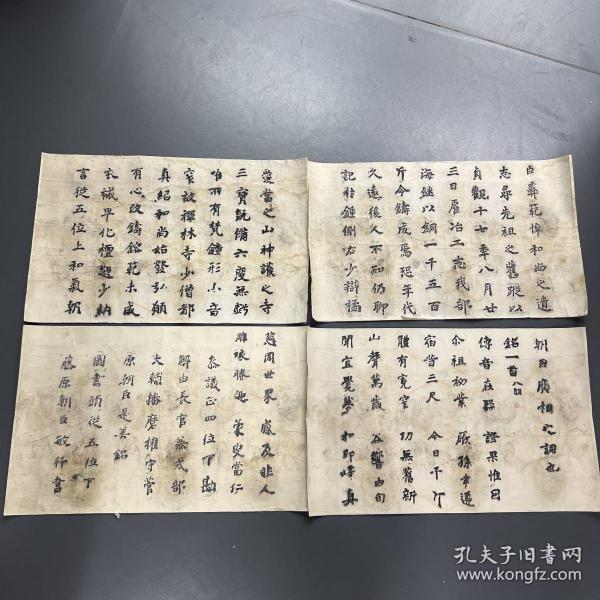 愛當之山神護之寺
三寶既備六度無虧
唯所有梵鐘形小音
窄故禪林寺少僧都
真紹和尚始發弘願
有心改鑄鎔範未成
衣裓早化檀越少納
言從五位上和氣朝
臣彝範悼和尚之遺
志尋先祖之舊蹤以
貞觀十七年八月廿
三日雇冶工志我部
海繼以銅一千五百
斤令鑄成焉恐年代
久遠後人不知仍聊
記於鍾側右少辯橘
朝臣廣相之詞也
銘一首八韻
傳音在器 證果惟因
尒祖初業 厥孫幸遵
宿昔三尺 今日千斤
體有寬窄 功無舊新
山聲萬歲 谷響由旬
聞宜覺夢 和即歸真
慈周世界 感及非人
雕琢勝趣 蒙叟當仁
參議正四位下勘
解由長官兼式部
大輔播磨權守菅
原朝臣是善銘
圖書頭從五位下
藤原朝臣敏行書
孔夫子旧书网
www.kongfz.com